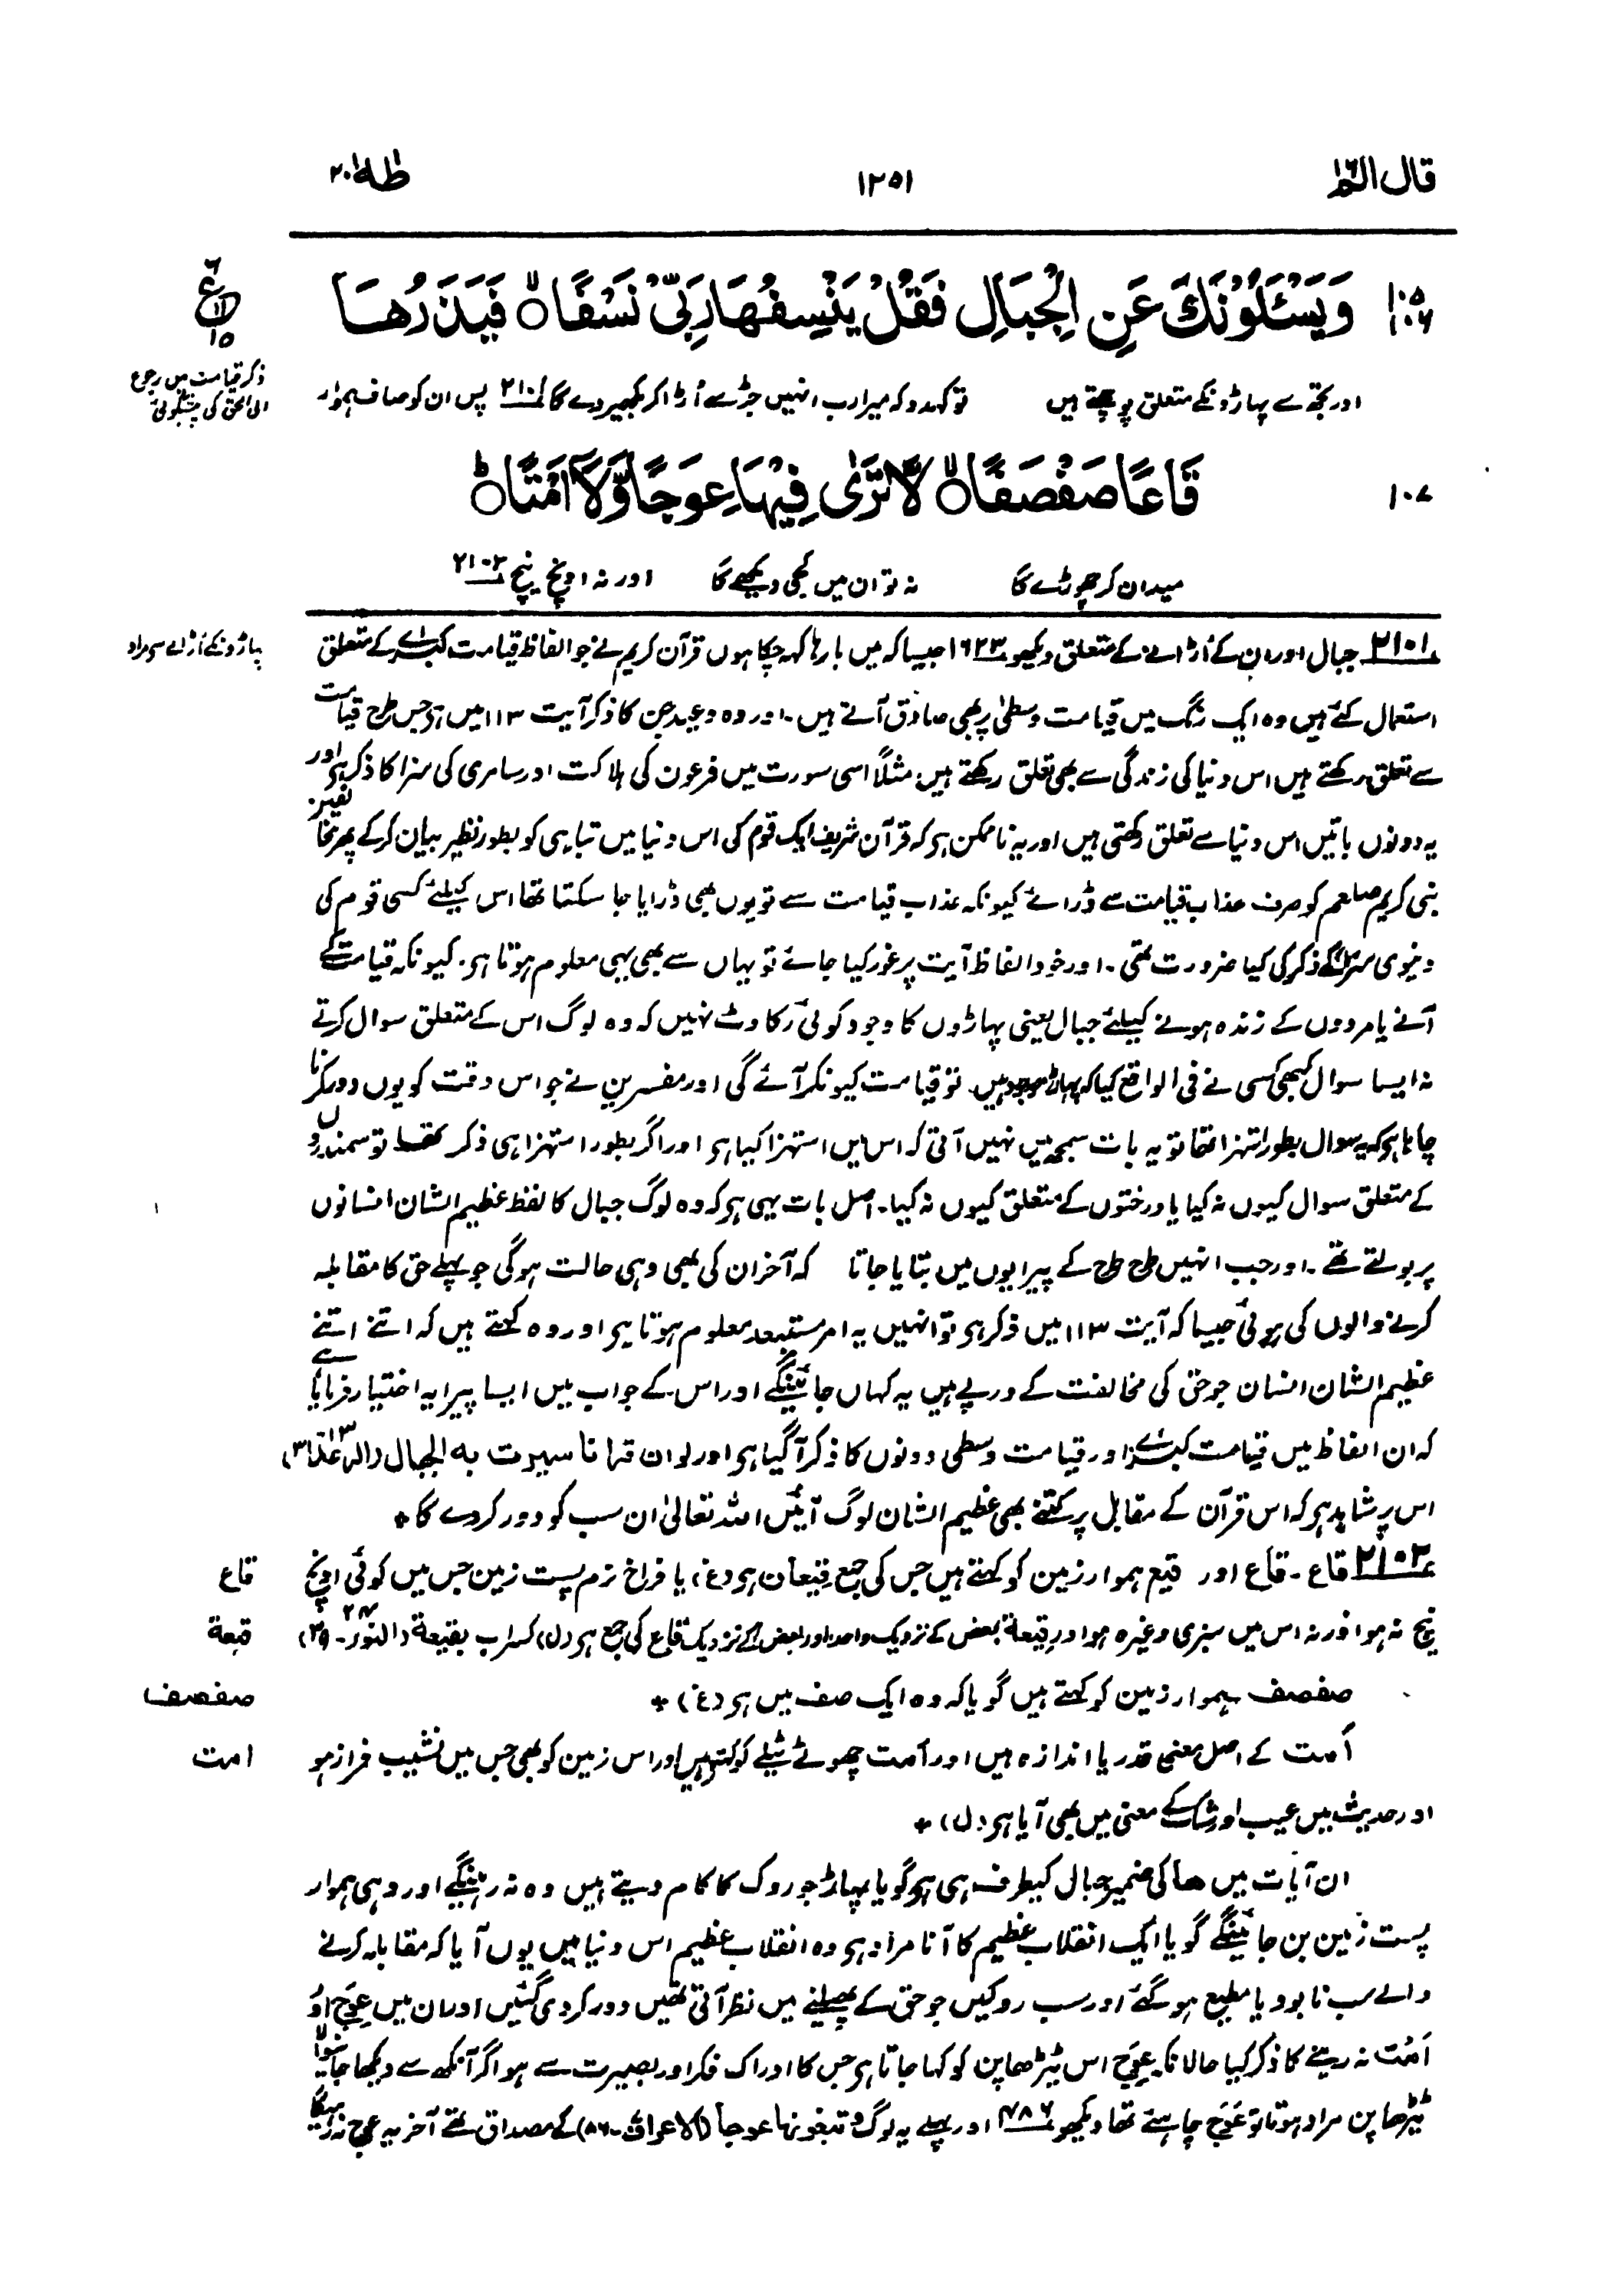 قال الم ۱۶
۱۲۵۱
طٰهٰ ۲۰
۱۰۵
۱۰۶
وَيَسْـَٔلُوْنَكَ عَنِ الْجِبَالِ فَقُلْ يَنْسِفُهَا رَبِّىْ نَسْفًا ۙ فَيَذَرُهَا
ع
اور تجھ سے پہاڑونکے متعلق پوچھتے ہیں تو کہدو کہ میرا رب انہیں جڑ سے اُڑا کر بکھیر دے گا ۲۱۰۱ پس ان کو صاف ہموار
ذکر قیامت میں رجوع
الی الحق کی پیشگوئی
۱۰۷
قَاعًا صَفْصَفًا ۙ لَّا تَرٰى فِيْهَا عِوَجًا وَّلَآ اَمْتًا ؕ
میدان کر چھوڑے گا نہ تو ان میں کجی دیکھے گا اور نہ اونچ نیچ ۲۱۰۲
۲۱۰۱ جبال اور ان کے اُڑانے کے متعلق دیکھو ۱۶۲۳ جیسا کہ میں بارہا کہہ چکا ہوں قرآن کریم نے جو الفاظ قیامت کبریٰ کے متعلق
پہاڑونکے اُڑانے سے مراد
استعمال کئے ہیں وہ ایک رنگ میں قیامت وسطیٰ پر بھی صادق آتے ہیں۔ اور وہ وعید جن کا ذکر آیت ۱۱۳ میں ہے جس طرح قیامت
سے تعلق رکھتے ہیں اس دنیا کی زندگی سے بھی تعلق رکھتے ہیں مثلاً اسی سورت میں فرعون کی ہلاکت اور سامری کی سزا کا ذکر ہے اور
یہ دونوں باتیں اس دنیا سے تعلق رکھتی ہیں اور یہ ناممکن ہے کہ قرآن شریف ایک قوم کی اس دنیا میں تباہی کو بطور نظیر بیان کرکے پھر مخالفین
نبی کریم صلعم کو صرف عذاب قیامت سے ڈرائے کیونکہ عذاب قیامت سے تو یوں بھی ڈرایا جا سکتا تھا اس کیلئے کسی قوم کی
دنیوی سزا کے ذکر کی کیا ضرورت تھی۔ اور خود الفاظ آیت پر غور کیا جائے تو یہاں سے بھی یہی معلوم ہوتا ہے۔ کیونکہ قیامت کے
آنے یا مردوں کے زندہ ہونے کیلئے جبال یعنی پہاڑوں کا وجود کوئی رکاوٹ نہیں کہ وہ لوگ اس کے متعلق سوال کرتے
نہ ایسا سوال کبھی کسی نے فی الواقع کیا کہ پہاڑ موجود ہیں۔ تو قیامت کیونکر آئے گی اور مفسرین نے جو اس دقت کو یوں دور کرنا
چاہا ہے کہ یہ سوال بطور استہزا تھا تو یہ بات سمجھ میں نہیں آتی کہ اس میں استہزا کیا ہے اور اگر بطور استہزا ہی ذکر تھا تو سمندروں
کے متعلق سوال کیوں نہ کیا یا درختوں کے متعلق کیوں نہ کیا۔ اصل بات یہی ہے کہ وہ لوگ جبال کا لفظ عظیم الشان انسانوں
پر بولتے تھے۔ اور جب انہیں طرح طرح کے پیرایوں میں بتایا جاتا کہ آخر ان کی بھی وہی حالت ہوگی جو پہلے حق کا مقابلہ
کرنے والوں کی ہوئی جیسا کہ آیت ۱۱۳ میں ذکر ہے تو انہیں یہ امر مستبعد معلوم ہوتا ہے اور وہ کہتے ہیں کہ اتنے اتنے
عظیم الشان انسان جو حق کی مخالفت کے درپے ہیں یہ کہاں جائینگے اور اس کے جواب میں ایسا پیرایہ اختیار فرمایا ہے
کہ ان الفاظ میں قیامت کبریٰ اور قیامت وسطی دونوں کا ذکر آگیا ہے اور لو ان قرانا سیرت به الجبال (الرعد ۱۳-۳۱)
اس پر شاہد ہے کہ اس قرآن کے مقابل پر کتنے بھی عظیم الشان لوگ آئیں اللہ تعالیٰ ان سب کو دور کر دے گا *
۲۱۰۲ قاع۔ قاع اور قیع ہموار زمین کو کہتے ہیں جس کی جمع قیعان ہے (غ) یا فراخ نرم پست زمین جس میں کوئی اونچ
قاع
نیچ نہ ہو اور نہ اس میں سبزی وغیرہ ہو اور قیعة بعض کے نزدیک واحد اور بعض کے نزدیک قاع کی جمع ہے (ل) کسراب بقیعة (النور ۲۴-۳۹)
قیعة
صفصف ہموار زمین کو کہتے ہیں گویا کہ وہ ایک صف میں ہے (غ) *
صفصف
اَمت کے اصل معنی قدر یا اندازہ ہیں اور اَمت چھوٹے ٹیلے کو کہتے ہیں اور اس زمین کو بھی جس میں نشیب فراز ہو
امت
اور حدیث میں عیب اور شک کے معنی میں بھی آیا ہے (ل) *
ان آیات میں ھا کی ضمیر جبال کیطرف ہی ہے گویا پہاڑ جو روک کا کام دیتے ہیں وہ نہ رہینگے اور وہی ہموار
پست زمین بن جائینگے گویا ایک انقلاب عظیم کا آنا مراد ہے وہ انقلاب عظیم اس دنیا میں یوں آیا کہ مقابلہ کرنے
والے سب نابود یا مطیع ہو گئے اور سب روکیں جو حق کے پھیلنے میں نظر آتی تھیں دور کر دی گئیں اور ان میں عِوَج اور
اَمْت نہ رہنے کا ذکر کیا حالانکہ عِوَج اس ٹیڑھاپن کو کہا جاتا ہے جس کا ادراک فکر اور بصیرت سے ہو اگر آنکھ سے دیکھا جانیوالا
ٹیڑھا پن مراد ہوتا تو عَوَج چاہئے تھا دیکھو ۴۸۶ اور پہلے یہ لوگ و تبغونها عوجاً (الاعراف-۸۶) کے مصداق تھے آخر یہ عوج نہ رہیگا